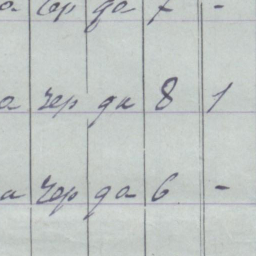 а чер да 7 -
а чер да 8 1
а чер да 6 -